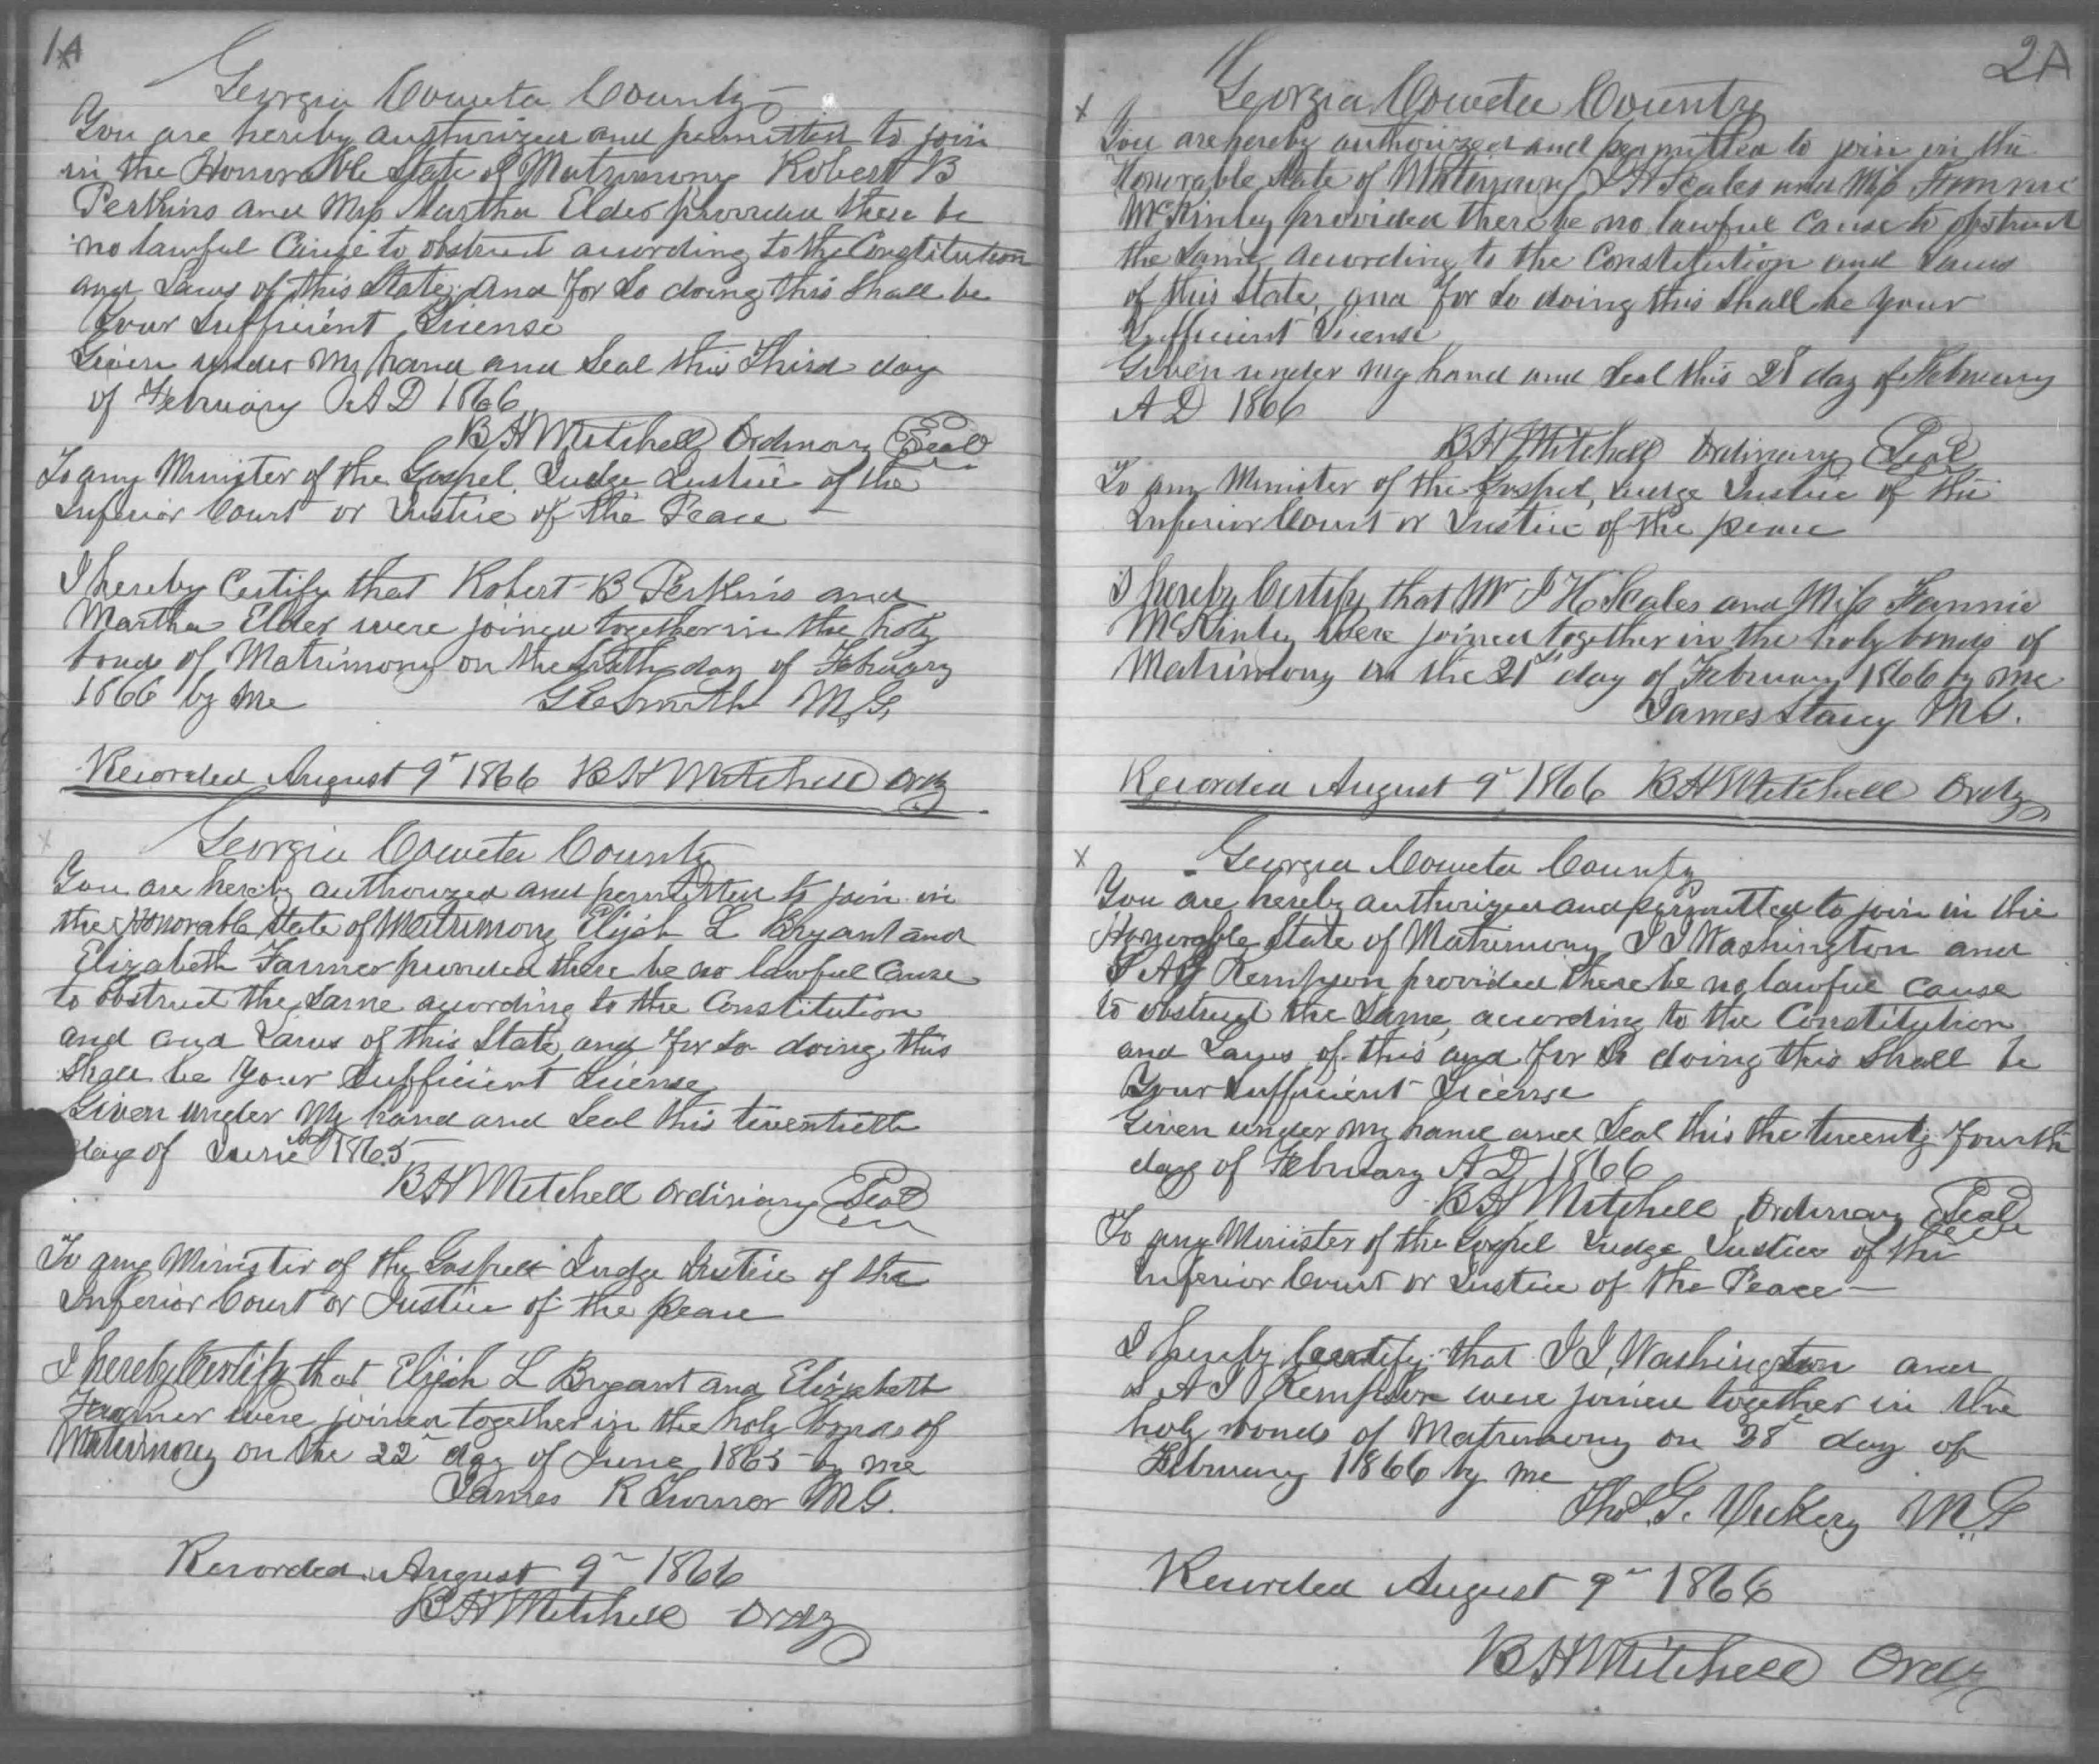 1A
Georgia Coweta County
You are hereby authurized and permitted to join
in the Honorable State of Matrimony Robert B
Perkins and Mrs Martha Elder provided there be
no lawful Cause to obstruct according to the Constitution
and Laws of this State, and for so doing this Shall be
Your Sufficient License
Given under my hand and Seal this Third day
of February AD 1866
B H Mitchell Ordinary Seal
To any Minister of the Gospel Judge Justice of the
Inferior Court or Justice of the Peace
I hereby Certify that Robert B Perkins and
Martha Elder were joined together in the holy
bonds of Matrimony on the day of February
1866 by me Smith M.G.
Recorded August 9" 1866 B H Mitchell Ordy
Georgia Coweta County
You are hereby authorized and permitted to join in
the Honorable State of Matrimony Elijah L Bryant and
Elizabeth Farmer provided there be no lawful Cause
to obstruct the Same according to the Constitution
and and Laws of this State, and for So doing, this
Shall be Your Sufficient License
Given under My hand and Seal this twentieth
day of June AD 1865
B H Mitchell Ordinary Seal
To any Minister of the Gospell Judge Justice of the
Inferior Court or Justice of the peace
I hereby Certify that Elijah L Bryant and Elizabeth
Farmer were joined together in the holy bonds of
Matrimony on the 22" day of June 1865 by me
James R Turner M G.
Recorded August 9" 1866
B H Mitchell Ordy
2A
x Georgia Coweta County
You are hereby authorized and permitted to join in the
Honorable State of Matrimony J H Scales and Miss Fannie
McKinley provided there be no lawful Cause to obstruct
the Same according to the Constitution and Laws
of this State, and for So doing this Shall be Your
Sufficient License
Given under my hand and Seal this 28 day of February
A D 1866
B H Mitchell Ordinary Seal
To any Minister of the Gospel, Judge Justice of the
Inferior Court or Justice of the peace
I hereby Certify that Mr J H Scales and Miss Fannie
McKinley were joined together in the holy bonds of
Matrimony on the 21st day of February 1866 by me
James Stacy M G.
Recorded August 9" 1866 B H Mitchell Ordy
x Georgia Coweta County
You are hereby authurized and permitted to join in the
Honorable State of Matrimony J J Washington and
S A J Kempson provided there be no lawful cause
to obstruct the Same, according to the Constitution
and Laws of this and for So doing this Shall be
Your Sufficient License
Given under my hand and Seal this the twenty fourth
day of February A D 1866
B H Mitchell Ordinary Seal
To any Minister of the Gospel Judge Justice of the
Inferior Court or Justice of the Peace
I hereby Certify that J J Washington and
S A J Kempson were joined together in the
holy bonds of Matrimony on 28" day of
February 1866 by me
Thos. G. Vickery M.G
Recorded August 9" 1866
B H Mitchell Ordy